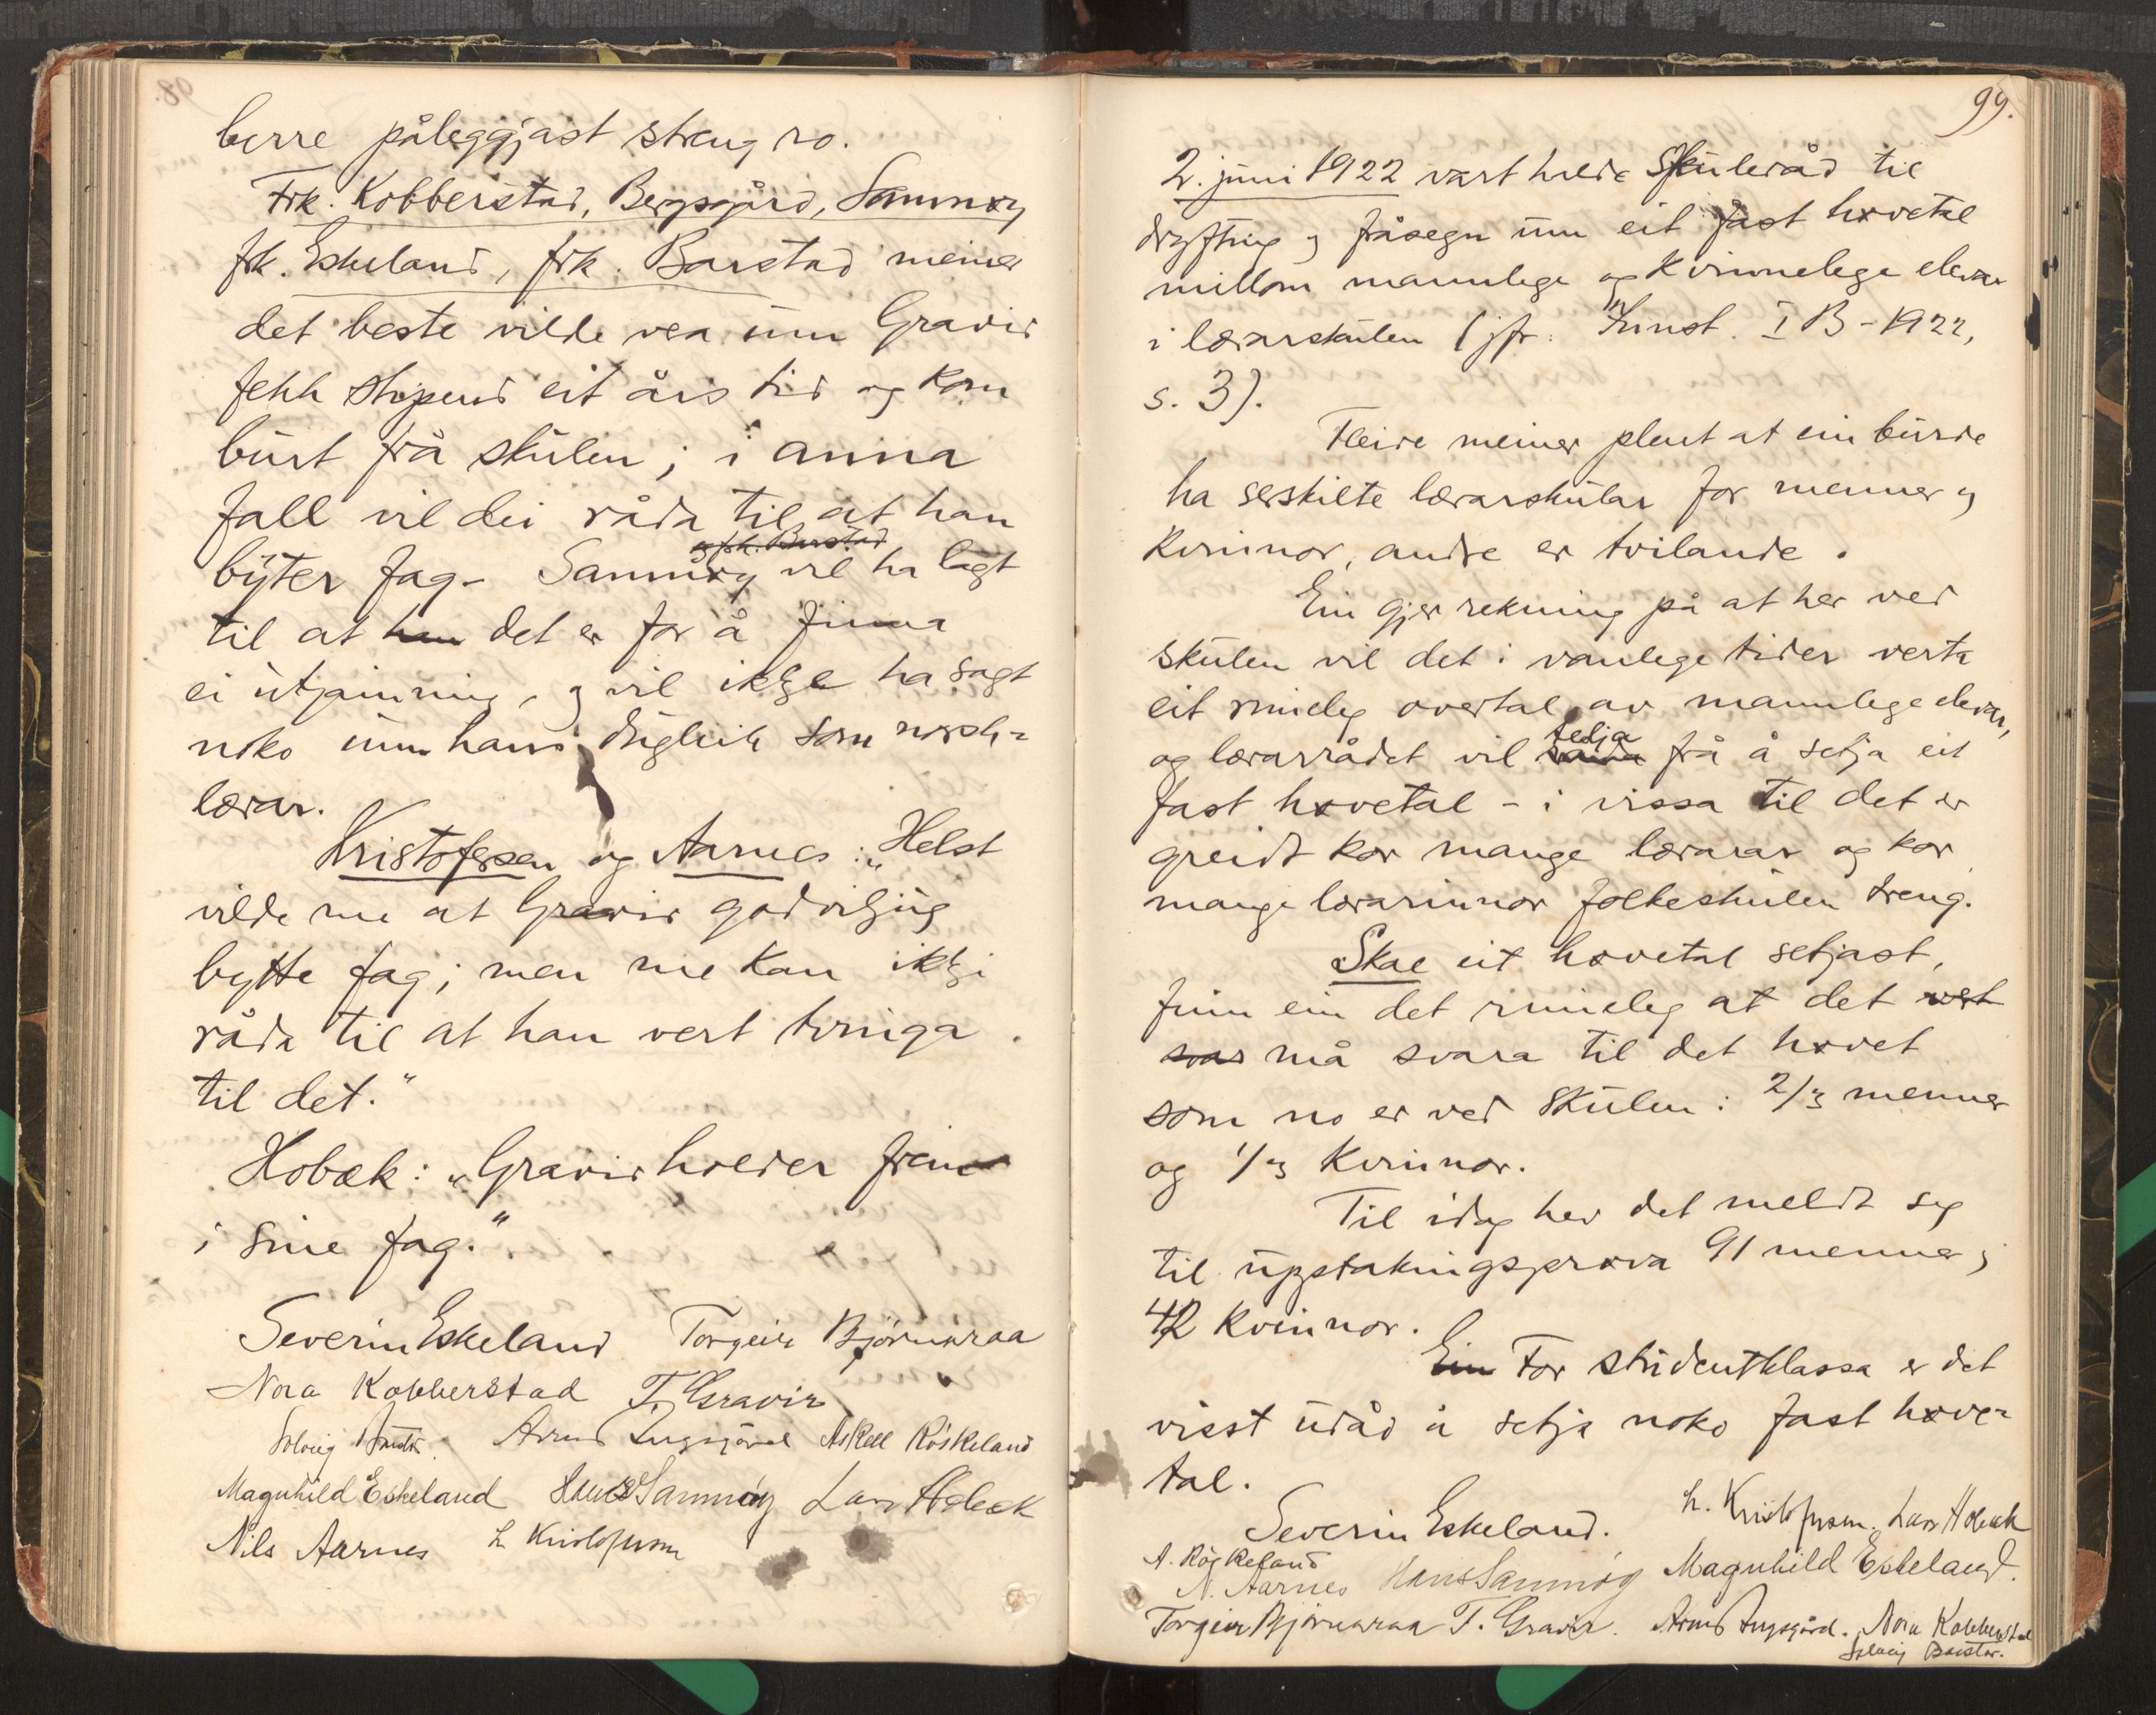 berre påleggjast streng ro.
Frk. Kobberstad, Bergsgård, Sannøy
frk. Eskeland, frk. Barstad meiner
det beste vilde vera um Gravir
fekk stipend eit års tid og kom
burt frå skulen; i anna
fall vil dei råda til at han
og frk. Barstad
byter fag - Sannøy vil ha lagt
til at han det er for å finna
ei utjamning, og vil ikkje ha sagt
noko um hans dugleik som norsk-
lærar.
Kristofersen og Aarnes: „Helst
vilde me at Gravir godviljug
bytte fag; men me kan ikkji
råda til at han vert tvinga
til det."
Hobæk: „Gravir holder frem
i sine fag."
Severin Eskeland Torgeir Bjørnaraa
Nora Kobberstad T. Gravir
Solveig Askell Røskeland
Magnhild Eskeland Hans Sannøy Lars Hobæk
Nils Aarnes L Kristofersen
99.
2. juni 1922 vart halde Skuleråd til
drøfting og fråsegn um eit fast høvetal
millom mannlege og kvinnelege elevar
i lærarskulen (jfr. Innst. I B - 1922,
s. 3).
Fleire meiner plent at ein burde
ha serskilte lærarskular for menner og
kvinnor, andre er tvilande.
Ein gjer rekning på at her ved
skulen vil det i vanlege tider verta
eit rimeleg overtal av mannlege elevar,
telja
og lærarrådet vil råda frå å setja eit
fast høvetal - i vissa til det er
greidt kor mange lærarar og kor
mange lærarinnor folkeskulen treng.
Skal eit høvetal setjast,
finn ein det rimeleg at det vert
svar må svara til det høvet
som no er ved skulen: 2/3 menner
og 1/3 kvinnor.
Til idag hev det meldt seg
til upptakingsprøva 91 menner,
42 kvinnor.
Ein For studentklassa er det
visst uråd å setja noko fast høve-
tal.
Severin Eskeland. L. Kristofersen. Lars Hobæk
A. Røskeland
N. Aarnes Hans Sannøy Magnhild Eskeland.
Torgeir Bjørnaraa T. Gravir. Nora Kobberstad
Solveig Barstad.